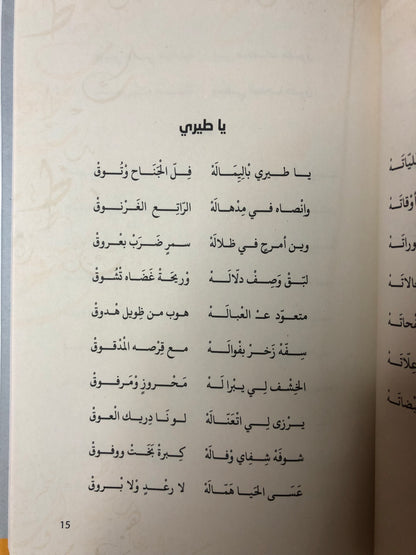 يا طيري
يـا طـيري بْالِيمَـالَهْ فِـلّ الْجَنَـاح وْتُـوقْ
وانْصاه فـي مِدْهـالَهْ الرّاتِـع الغَرْنـوقْ
وين أمـرح في ظلالهْ سمرٍ ضَرَبْ بعْروقْ
لبَـقْ وَصِـفْ دلَالَـهْ وْريحَةْ غَضَاه تْنُـوقْ
متعوّد عـڒ العبـالَـهْ هوب من طْويل هْدوقْ
سِفَهْ زَخَـرْ بفْوالَـهْ مـع قِرْصـه المَدْقـوقْ
الخِشْـف لـي يبْرا لَـهْ مَحْـروزٍ ومَرفـوقْ
يـرزى لـي اتْعَنّالَهْ لـو نَـا دِريـك العوقْ
شوفَهْ شِفـاي وْفالَـهْ كبرةْ بَخَـتْ ووفـوقْ
عَسَـى الحَيا هَمّالَهْ لا رعـدٍ ولا بْـروقْ
15